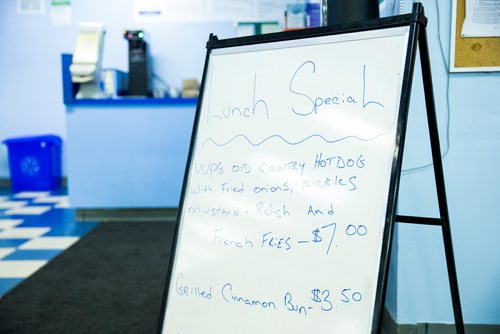 Lunch Special
WPG OlD COUNTRY HOTDOG
with Fried onions, pickles
mustard + Relish And
French FRIES - $7.00
Grilled Cinnamon Bun - $3.50